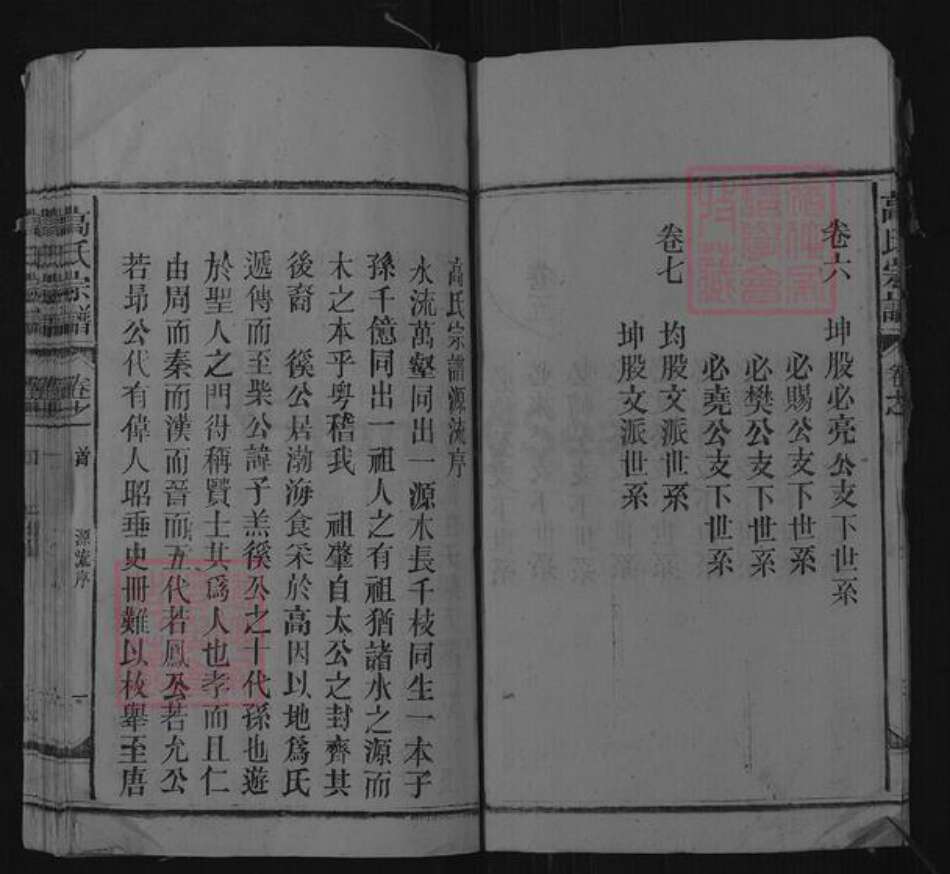 高氏宗譜
卷六　坤股必亮公支下世系
必賜公支下世系
必樊公支下世系
必堯公支下世系
卷七　均股文派世系
坤股文派世系
高氏宗譜源流序
水流萬壑同出一源木長千枝同生一本子
孫千億同出一祖人之有祖猶諸水之源而
木之本乎粤稽我　祖肇自太公之封齊其
後裔　徯公居渤海食采於高因以地爲氏
遞傳而至柴公諱子羔徯公之十代孫也遊
於聖人之門得稱賢士其爲人也孝而且仁
由周而秦而漢而晉而五代若鳳公若允公
若昻公代有偉人昭垂史冊難以枚舉至唐
高氏宗譜　卷之首　源流序　一